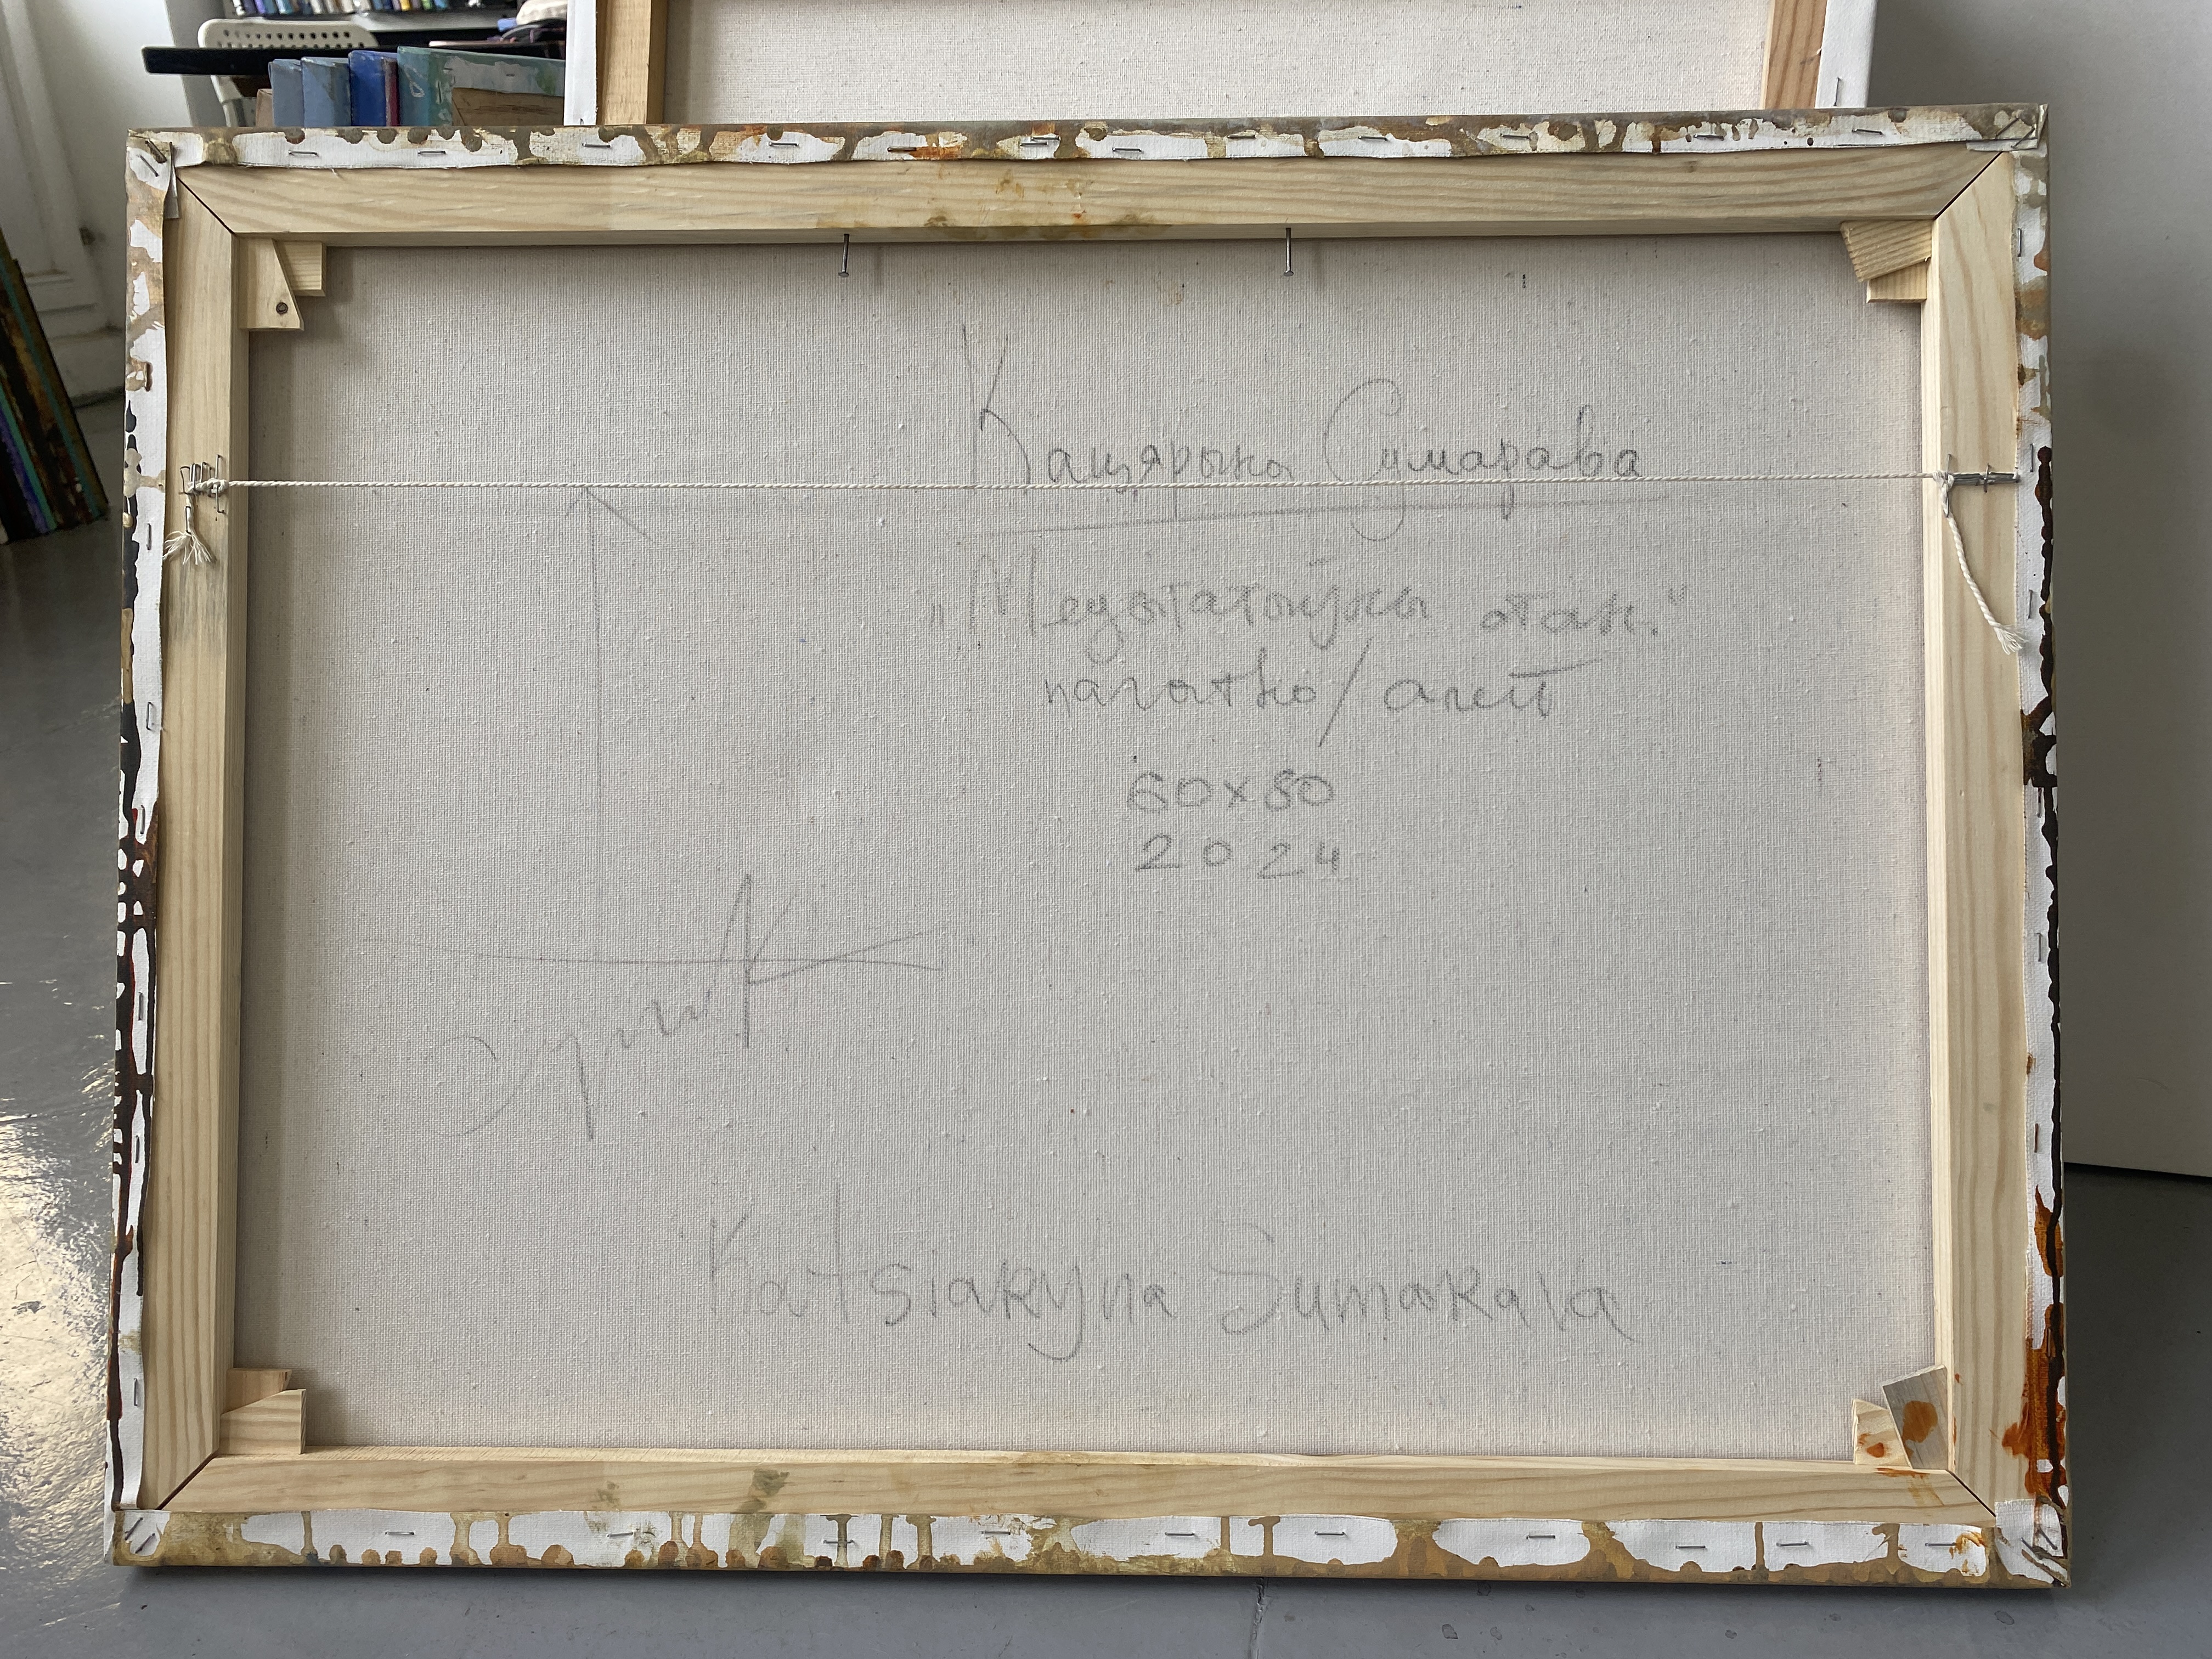 Кацярына Сумарава
„Медытатыўны стан."
палатно/алей
60x80
2024
Katsiaryna Sumarava